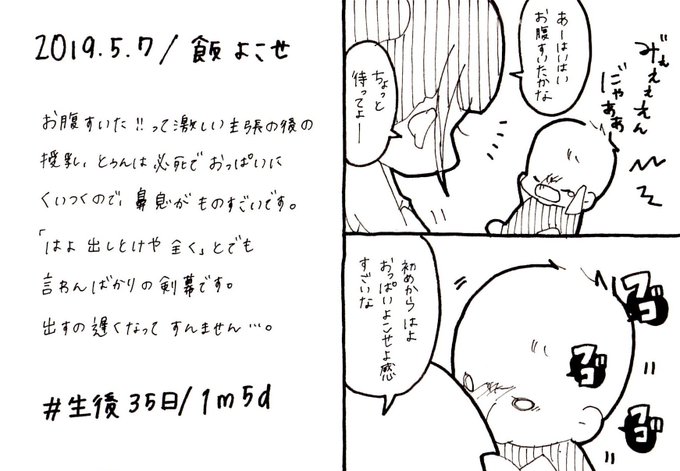 2019.5.7/飯よこせ
お腹すいた!!って激しい主張の後の
授乳、とぅんは必死でおっぱいに
くいつくので、鼻息がものすごいです。
「はよ出しとけや全く」とでも
言わんばかりの剣幕です。
出すの遅くなってすんません…。
#生後35日/1m5d
あーはいはい
お腹すいたかな
ちょっと
待ってよー
み゛ぇぇぇぇん
に゛ゃあああ
初めからはよ
おっぱいよこせよ感
すごいな
フゴ
フゴ
フゴ